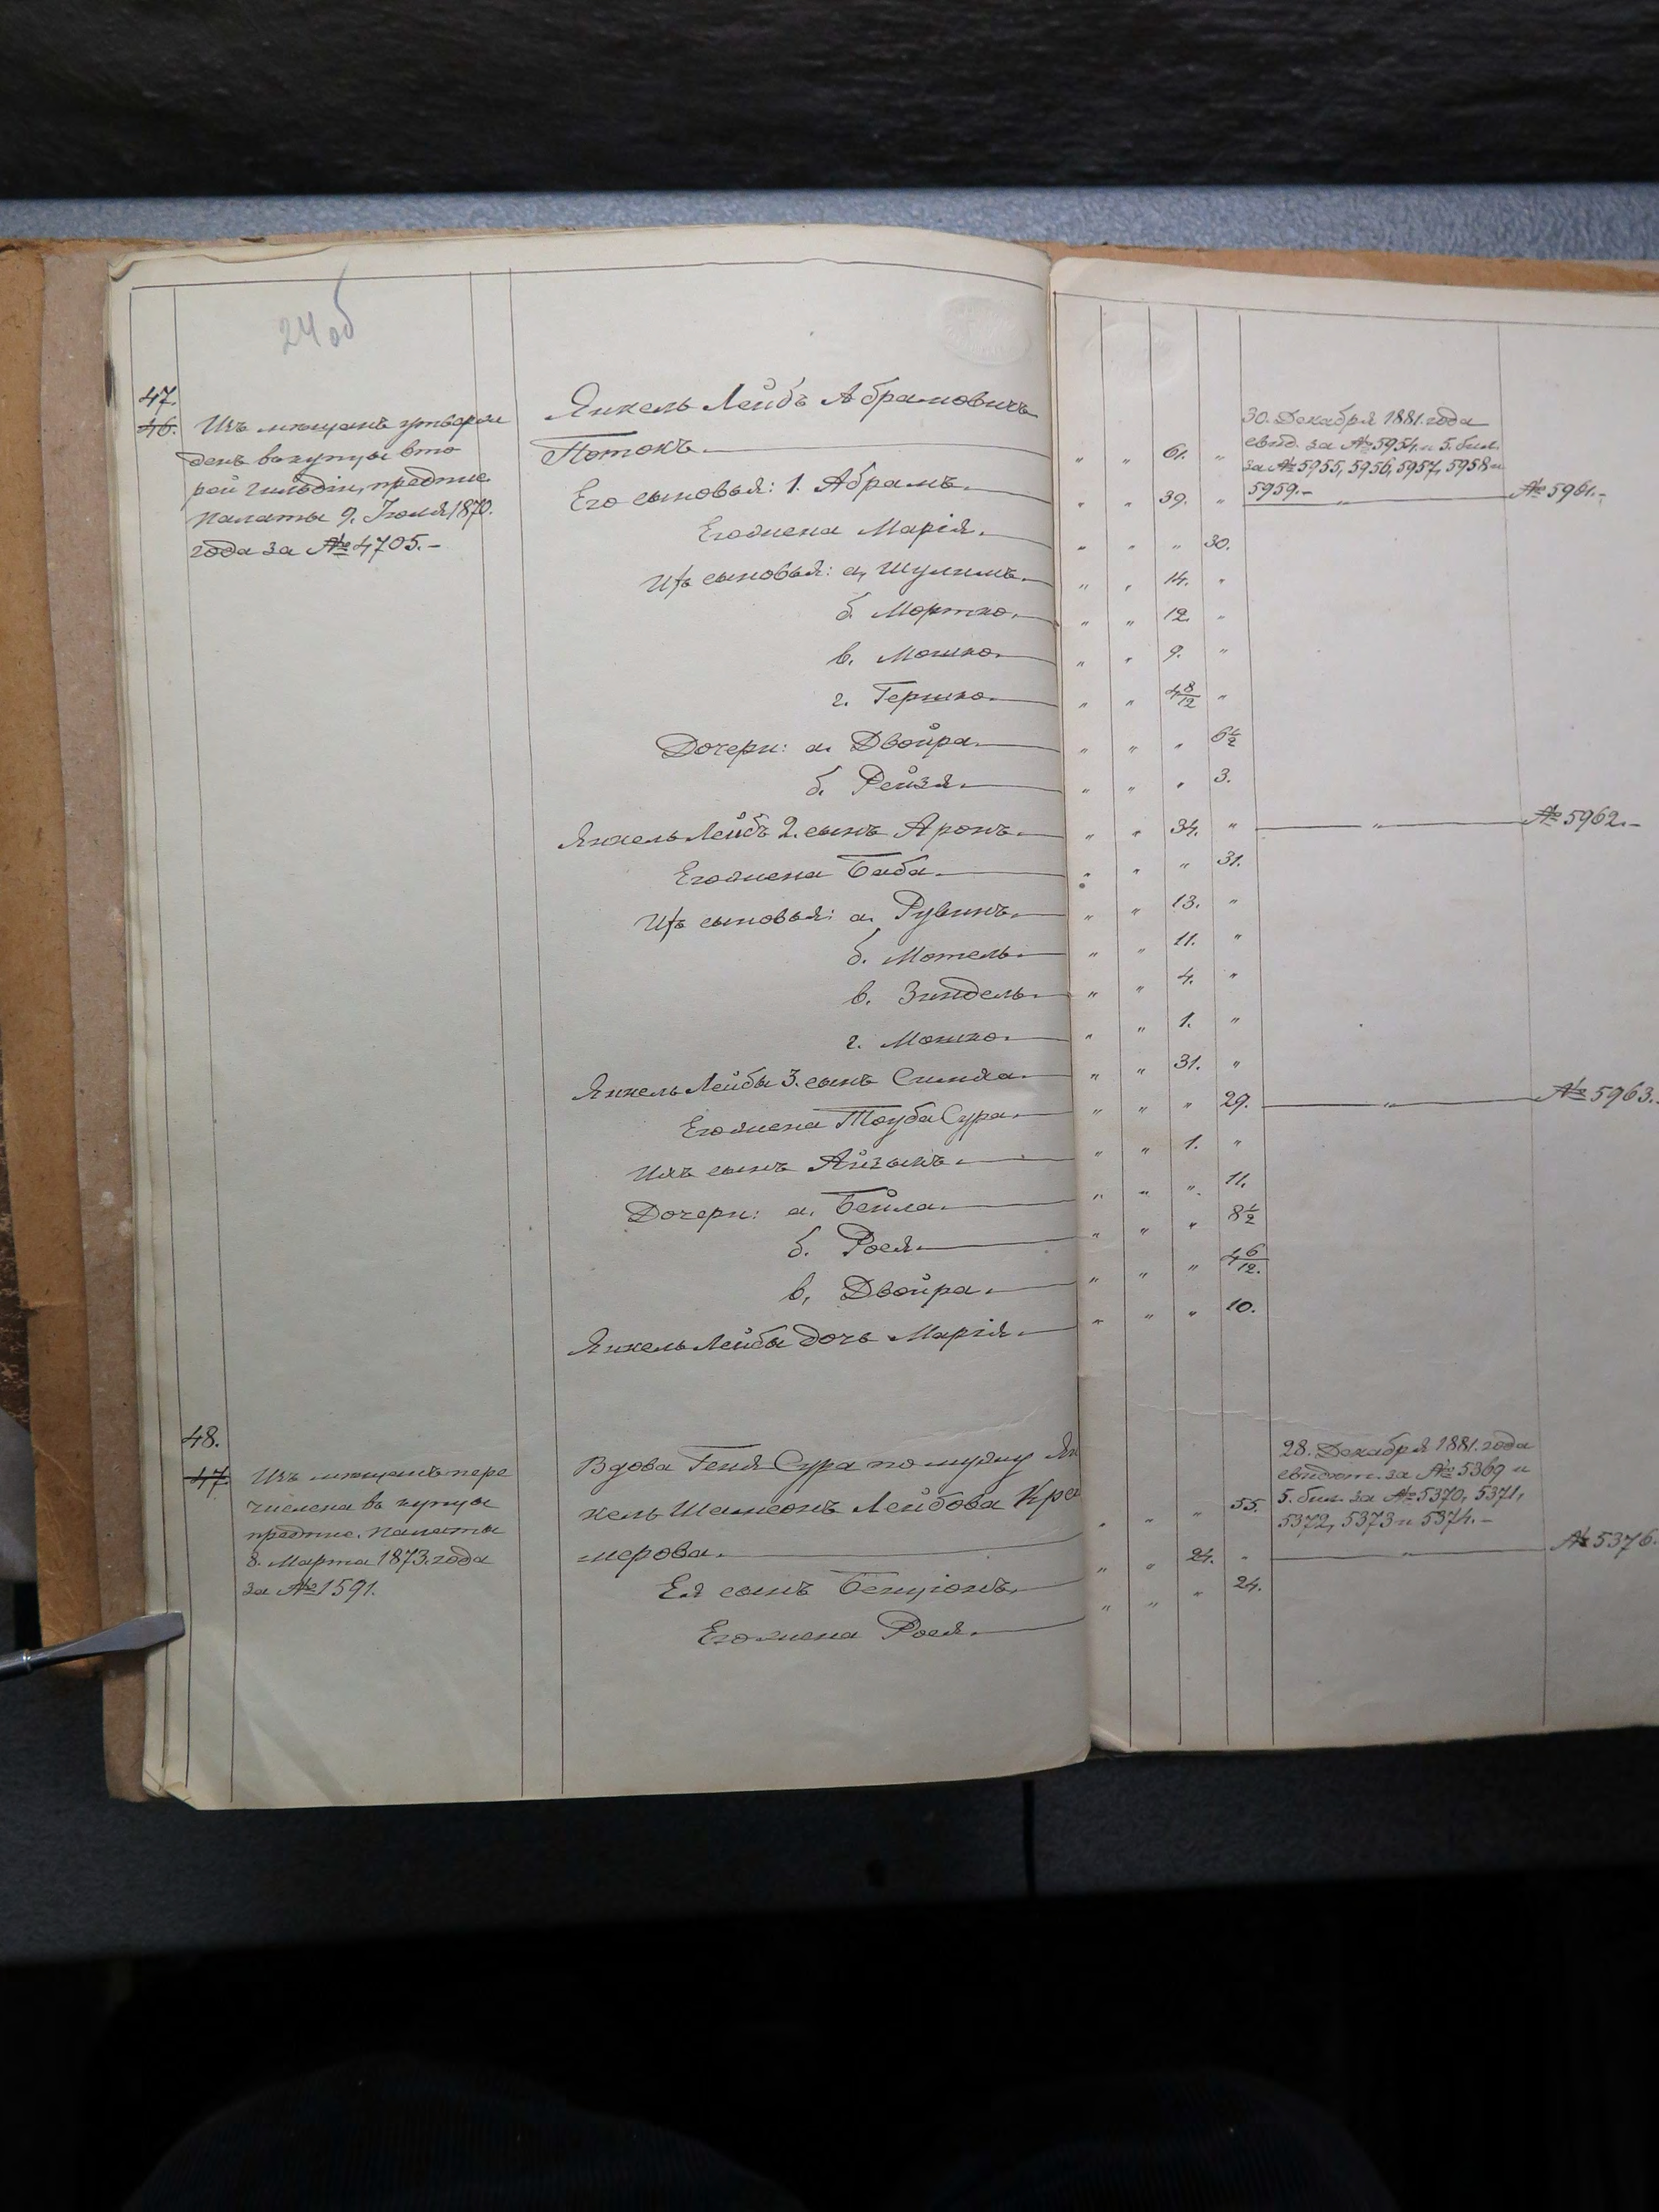 24 об
47.
46. Изъ мещанъ утверж
денъ въ купцы вто
рой гильдіи, предпис.
Палаты 9. Іюля 1870.
года за № 4705.-
Янкель Лейбъ Абрамовичъ
Потокъ. " " 61. "
30. Декабря 1881. года
свид. за № 5954. и 5. бил.
за № 5955, 5956, 5957, 5958 и
5959.-
Его сыновья: 1. Абрамъ. " " 39. " " № 5961.-
Его жена Марія. " " " 30.
Ихъ сыновья: а, Шулимъ. " " 14. "
б. Мортко. " " 12. "
в. Мошко. " " 9. "
г. Гершко. " " 4 8/12 "
Дочери: а. Двойра. " " " 6 1/2
б. Рейзя. " " " 3.
Янкель Лейбъ 2. сынъ Аронъ. " " 34. " " № 5962.-
Его жена Баба. " " " 31.
Ихъ сыновья: а. Рувинъ. " " 13. "
б. Мотель. " " 11. "
в. Зиндель. " " 4. "
г. Мошко. " " 1. "
Янкель Лейбы 3. сынъ Симха. " " 31. "
Его жена Тоуба Сура. " " " 29. " № 5963.
Ихъ сынъ Айзыкъ. " " 1. "
Дочери: а. Бейла. " " " 11.
б. Рося. " " " 8 1/2
в, Двойра. " " " 4 6/12.
Янкель Лейбы дочь Марія. " " " 10.
48.
47. Изъ мещанъ пере
числена въ купцы
предпис. Палаты
8. Марта 1873. года
за № 1591.
Вдова Геня Сура по мужу Ян
кель Шамсонъ Лейбова Кра
мерова. " " " 55.
28. Декабря 1881. года
свидет. за № 5369 и
5. бил. за № 5370, 5371,
5372, 5373 и 5374.-
Ея сынъ Бенціонъ. " " 24. " " № 5376.
Его жена Рося. " " " 24.